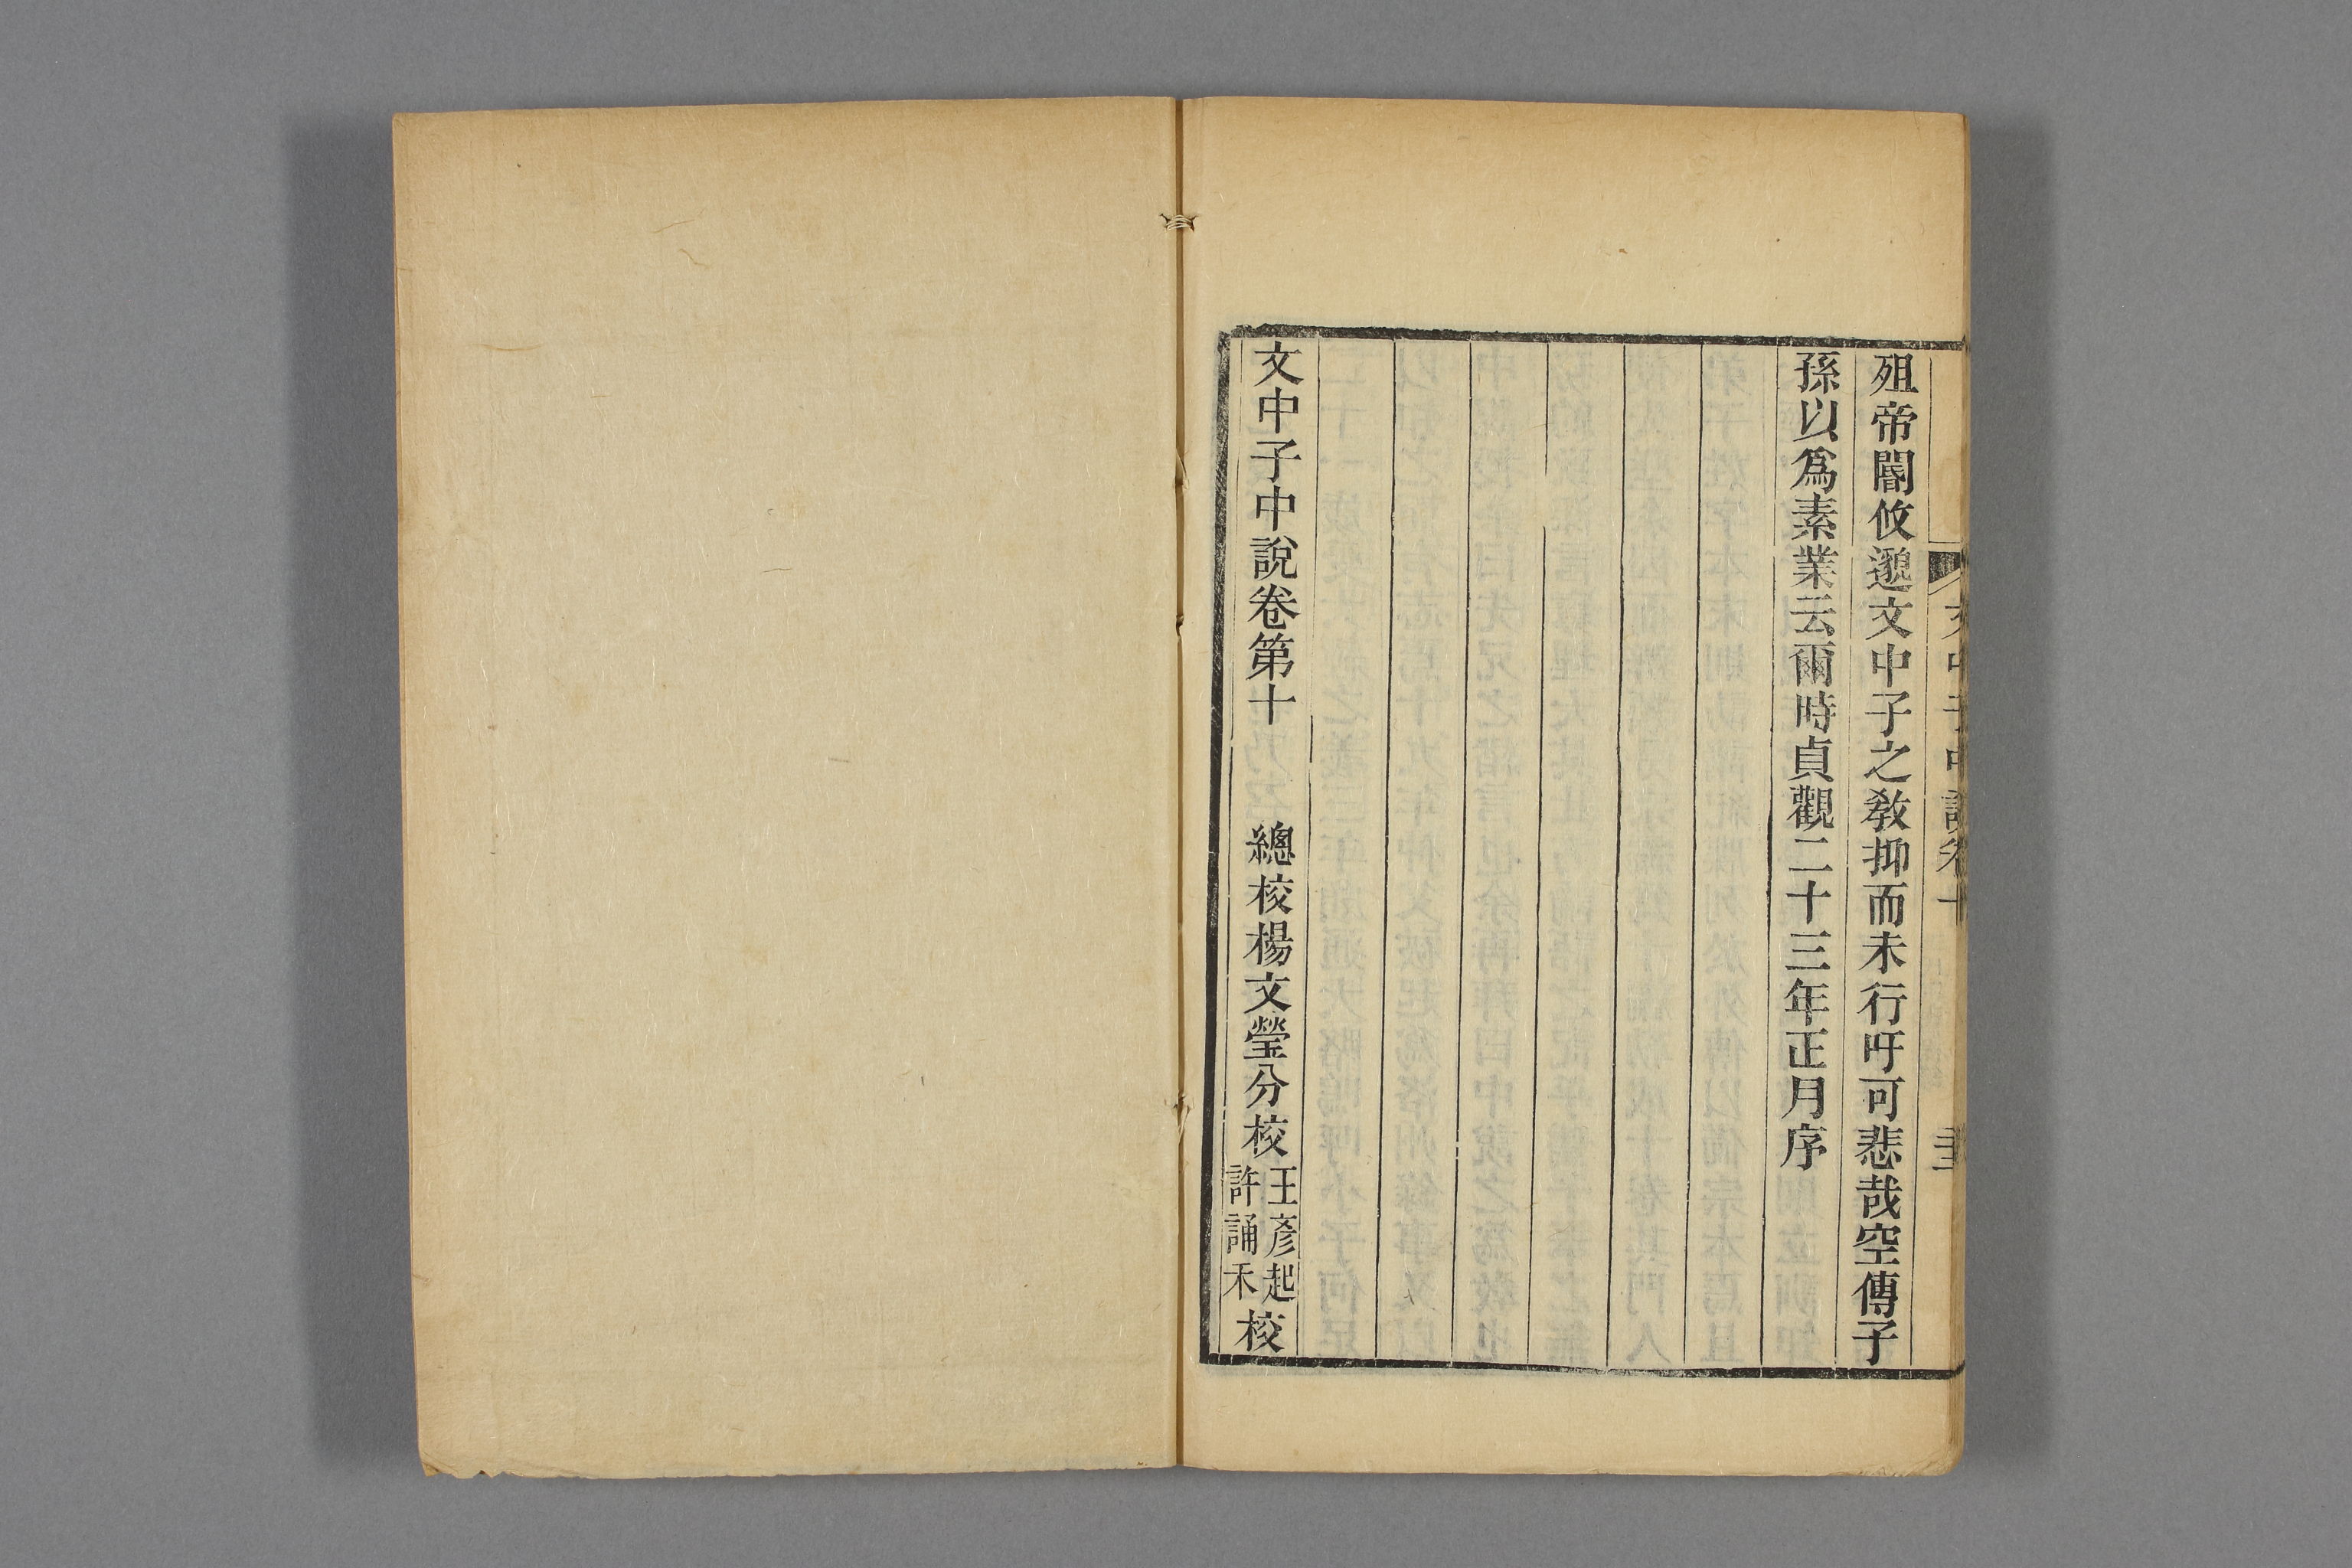 殂帝閽攸邈文中子之敎抑而未行吁可悲哉空傳子
孫以爲素業云爾時貞觀二十三年正月序
文中子中說卷第十　總校楊文瑩分校王彥起許誦禾校
文中子中說卷十